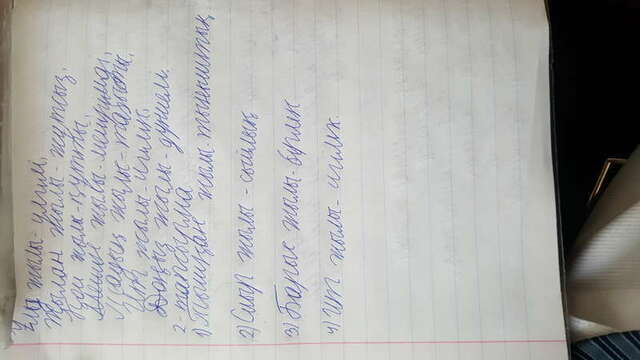 Ұлу жылы - үлгілі,
Жылан жылы - жұтсыз,
Қой жылы - құтты,
Мешін жылы - мейірімді,
Тауық жылы - тағысты,
Ит жылы - игілік.
Доңыз жылы - дүнием.
2-тапсырма
1) Тышқан жылы - тыныштық
2) Сиыр жылы - сыйлық
3) Барыс жылы - бірлік
4) ИТ жылы - игілік.